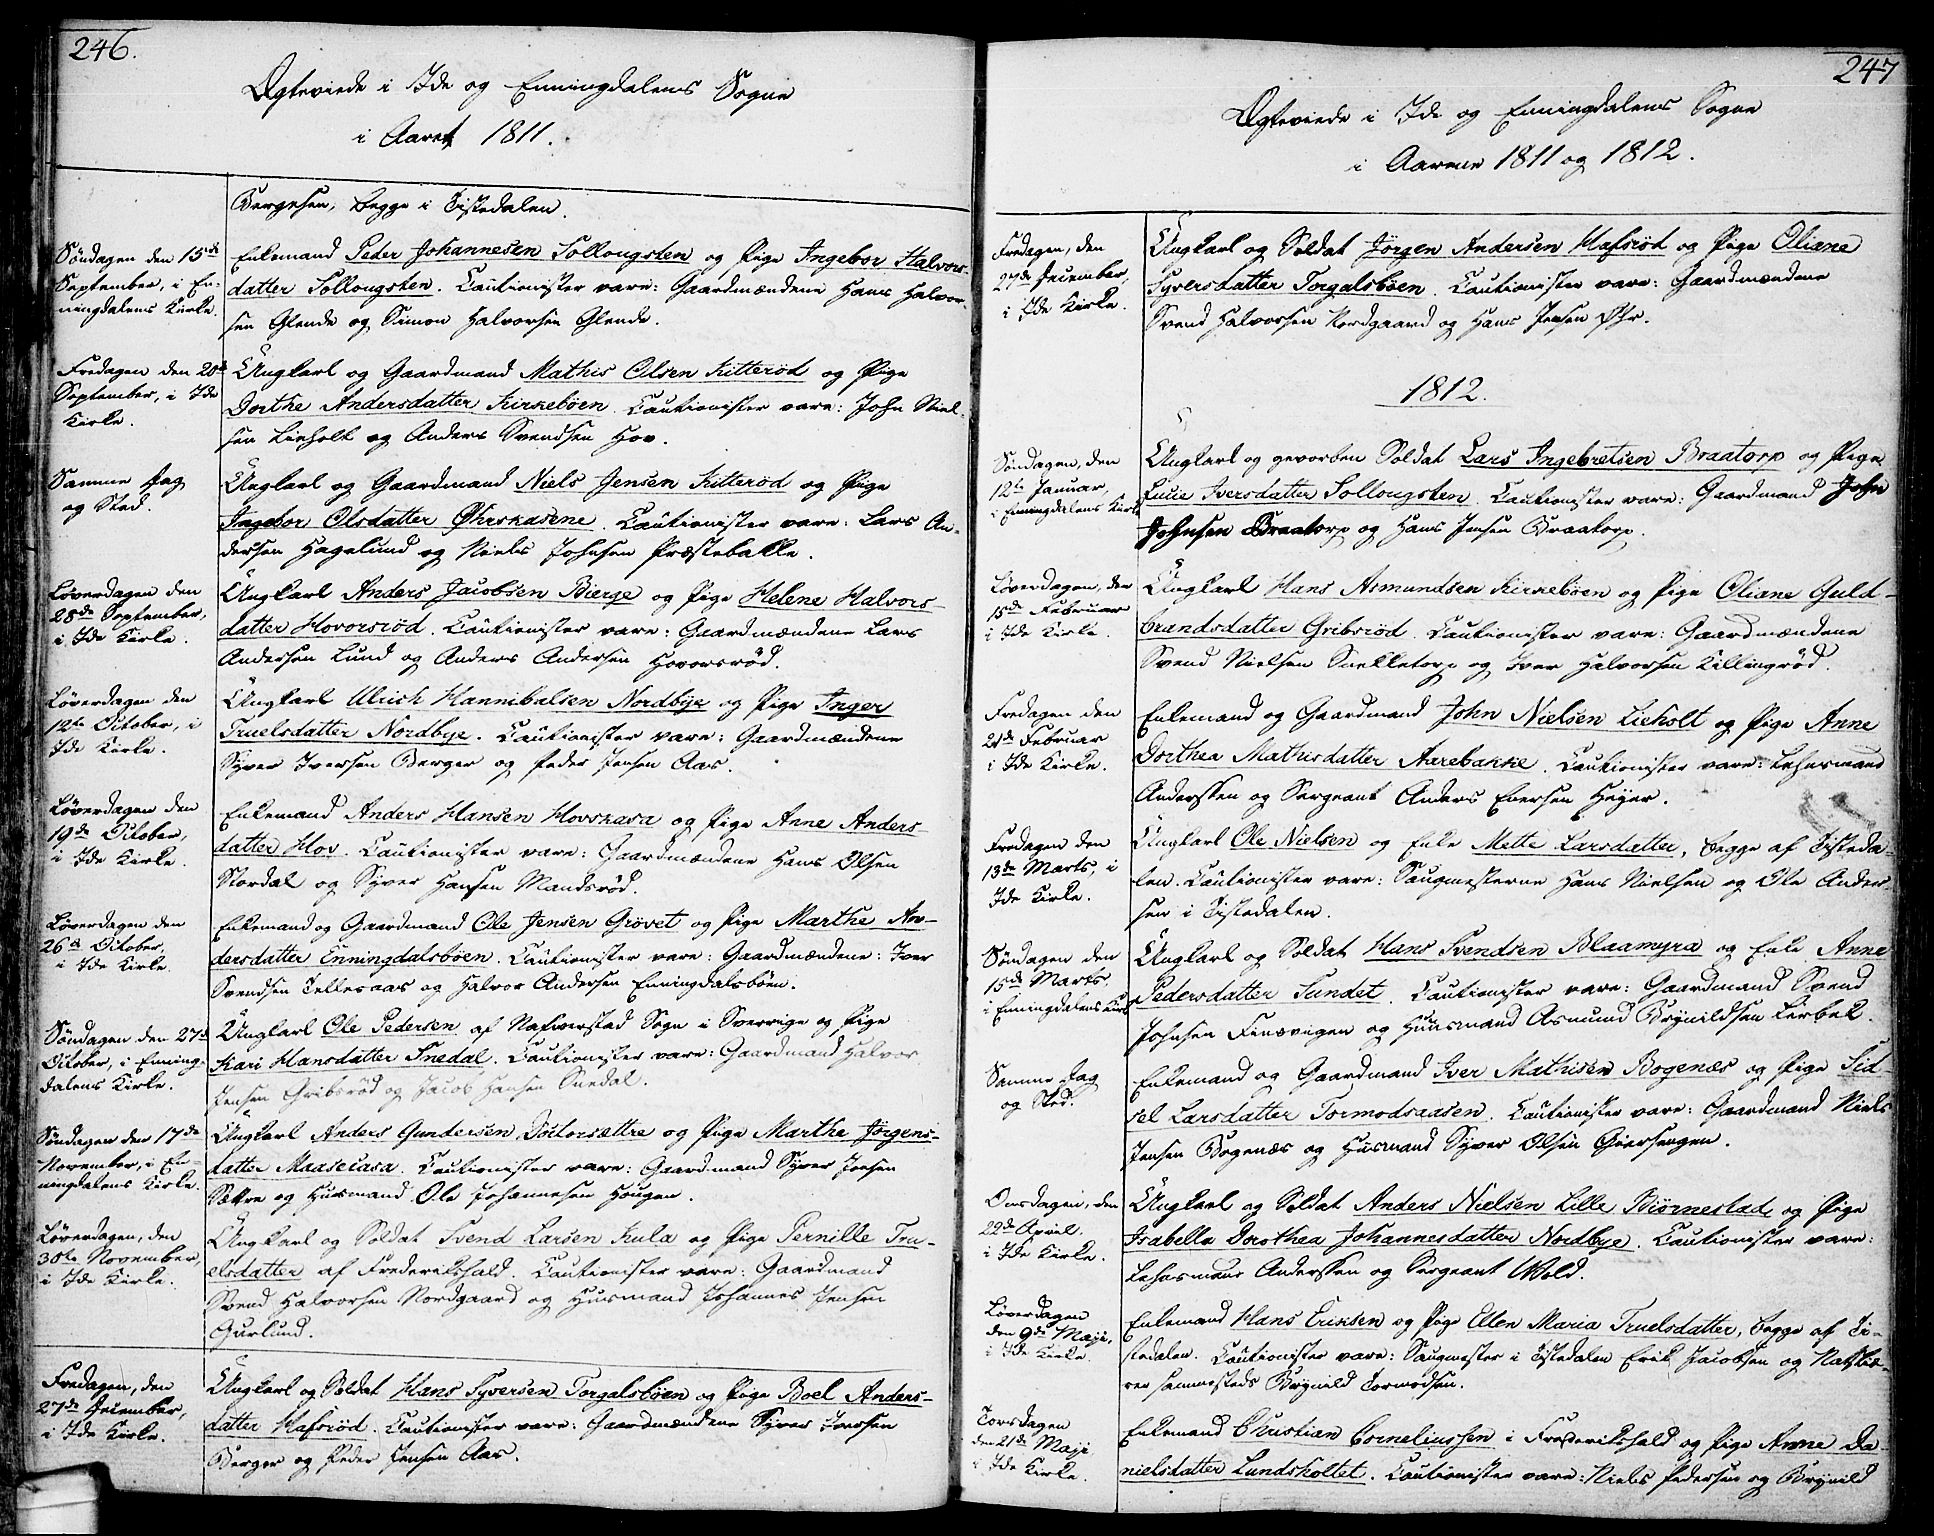 246.
Ægteviede i Ide og Enningdalens Sogne
i Aaret 1811.
Bergesen, begge i Tistedalen.
Søndagen den 15de
September, i En-
ningdalens Kirke.
Enkemand Peder Johannesen Sollougsten og Pige Ingebor Halvors-
datter Sollougsten. Cautionister vare: Gaardmændene Hans Halvor-
sen Glende og Simon Halvorsen Glende.
Fredagen den 20de
September, i Ide
Kirke.
Ungkarl og Gaardmand Mathis Olsen Kitterød og Pige
Dorthe Andersdatter Kirkebøen. Cautionister vare: John Niel-
sen Lieholt og Anders Svendsen Hov.
Samme Dag
og Sted.
Ungkarl og Gaardmand Niels Jensen Kitterød og Pige
Ingebor Olsdatter Øhrskasene. Cautionister vare: Lars An-
dersen Hagelund og Niels Johnsen Præstebakke.
Løverdagen den
28de September,
i Ide Kirke.
Ungkarl Anders Jacobsen Bierge og Pige Helene Halvors-
datter Hovorsrød. Cautionister vare: Gaardmændene Lars
Andersen Lund og Anders Andersen Hovorsrød.
Løverdagen den
12te October, i
Ide Kirke.
Ungkarl Ulrich Hannibalsen Nordbye og Pige Inger
Truelsdatter Nordbye. Cautionister vare: Gaardmændene
Syver Iversen Berger og Peder Jensen Aas.
Løverdagen den
19de October,
i Ide Kirke.
Enkemand Anders Hansen Hovskasa og Pige Anne Anders-
datter Hov. Cautionister vare: Gaardmændene Hans Olsen
Stordal og Syver Hansen Mandsrød.
Løverdagen den
26de October,
i Ide Kirke.
Enkemand og Gaardmand Ole Jensen Grövet og Pige Marthe An-
dersdatter Enningdalsbøen. Cautionister vare: Gaardmændene: Iver
Svendsen Tellesaas og Halvor Andersen Enningdalsbøen.
Søndagen den 27de
October, i Enning-
dalens Kirke.
Ungkarl Ole Pedersen af Nafverstad Sogn i Sverrige og Pige
Kari Hansdatter Snedal. Cautionister vare: Gaardmand Halvor
Jensen Gribsrød og Jacob Hansen Snedal.
Søndagen den 17de
November, i En-
ningdalens Kirke.
Ungkarl Anders Gundersen Dostorsættre og Pige Marthe Jørgens-
datter Maasecasa. Cautionister vare: Gaardmand Syver Jensen
Sættre og Huusmand Ole Johannesen Hougen.
Løverdagen, den
30te November,
i Ide Kirke.
Ungkarl og Soldat Svend Larsen Kula og Pige Pernille Tru-
elsdatter af Frederikshald. Cautionister vare: Gaardmand
Svend Halvorsen Nordgaard og Huusmand Johannes Jensen
Gurlund.
Fredagen, den
27de December,
i Ide Kirke.
Ungkarl og Soldat Hans Syversen Torgalsbøen og Pige Boel Anders-
datter Hafsrød. Cautionister vare: Gaardmændene Syver Iversen
Berger og Peder Jensen Aas.
247
Ægteviede i Ide og Enningdalens Sogne
i Aarene 1811 og 1812.
Fredagen, den
27de December,
i Ide Kirke.
Ungkarl og Soldat Jørgen Andersen Hafsrød og Pige Oliane
Syversdatter Torgalsbøen. Cautionister vare: Gaardmændene
Svend Halvorsen Nordgaard og Hans Jensen Øhr.
1812.
Søndagen, den
12te Januar,
i Enningdalens Kirke
Ungkarl og gevorben Soldat Lars Ingebretsen Braatorp og Pige
Lucie Iversdatter Sollougsten. Cautionister vare: Gaardmand John
Johnsen Braatorp og Hans Jensen Braatorp.
Løverdagen, den
15de Februar
i Ide Kirke.
Ungkarl Hans Asmundsen Kirkebøen og Pige Oliane Guld-
brandsdatter Gribsrød. Cautionister vare: Gaardmændene
Svend Nielsen Snelletorp og Iver Halvorsen Killingrød.
Fredagen den
21de Februar
i Ide Kirke.
Enkemand og Gaardmand John Nielsen Lieholt og Pige Anne
Dorthea Mathisdatter Aarebakke. Cautionister vare: Lehnsmand
Anderssen og Sergeant Anders Eversen Heyer.
Fredagen den
13de Marts, i
Ide Kirke.
Ungkarl Ole Nielsen og Enke Mette Larsdatter, begge af Tisteda-
len. Cautionister vare: Saugmesterne Hans Nielsen og Ole Ander-
sen i Tistedalen.
Søndagen den
15de Marts,
i Enningdalens Kirke
Ungkarl og Soldat Hans Svendsen Blaamyra og Enke Anne
Pedersdatter Sundet. Cautionister vare: Gaardmand Svend
Johnsen Finævigen og Huusmand Asmund Brynildsen Lerbek.
Samme Dag
og Sted.
Enkemand og Gaardmand Iver Mathisen Bogenæs og Pige Sid-
sel Larsdatter Tormodsaasen. Cautionister vare: Gaardmand Niels
Jensen Bogenæs og Huusmand Syver Olsen Giersengen.
Onsdagen, den
29de April.
i Ide Kirke.
Ungkarl og Soldat Anders Nielsen Lille Biørnestad, og Pige
Isabella Dorothea Johannesdatter Nordbye. Cautionister vare:
Lehnsmand Anderssen og Sergeant Wold.
Løverdagen
den 9de Maji,
i Ide Kirke.
Enkemand Hans Eriksen og Pige Ellen Maria Truelsdatter, begge af Ti-
stedalen. Cautionister vare: Saugmester i Tistedalen Erik Jacobsen og
sammesteds Brynild Tormodsen.
Torsdagen
den 21de Maji
i Ide Kirke.
Enkemand Christian Corneliussen i Frederikshald og Pige Anne Da-
nielsdatter Lundsholtet. Cautionister vare: Niels Pedersen og Brynild